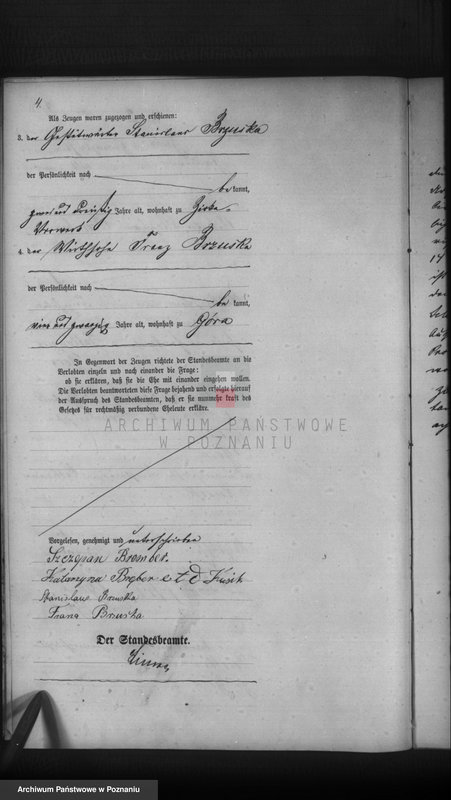 4.
Als Zeugen waren zugezogen und erschienen:
3. der Gestütwärter Stanislaus Brzuska
der Persönlichkeit nach
be kannt,
zwei und dreißig Jahre alt, wohnhaft zu Zirke-
Vorwerk
4. der Wirthssohn Franz Brzuska
der Persönlichkeit nach
be kannt,
vier und zwanzig Jahre alt, wohnhaft zu Góra
In Gegenwart der Zeugen richtete der Standesbeamte an die
Verlobten einzeln und nach einander die Frage:
ob sie erklären, daß sie die Ehe mit einander eingehen wollen.
Die Verlobten beantworteten diese Frage bejahend und erfolgte hierauf
der Ausspruch des Standesbeamten, daß er sie nunmehr kraft des
Gesetzes für rechtmäßig verbundene Eheleute erkläre.
ARCHIWUM PAŃSTWOWE
W POZNANIU
Vorgelesen, genehmigt und unterschrieben
Szczepan Brember
Katarzyna
Stanislaus Brzuska
Franz Brzuska
Der Standesbeamte.
Archiwum Państwowe w Poznaniu